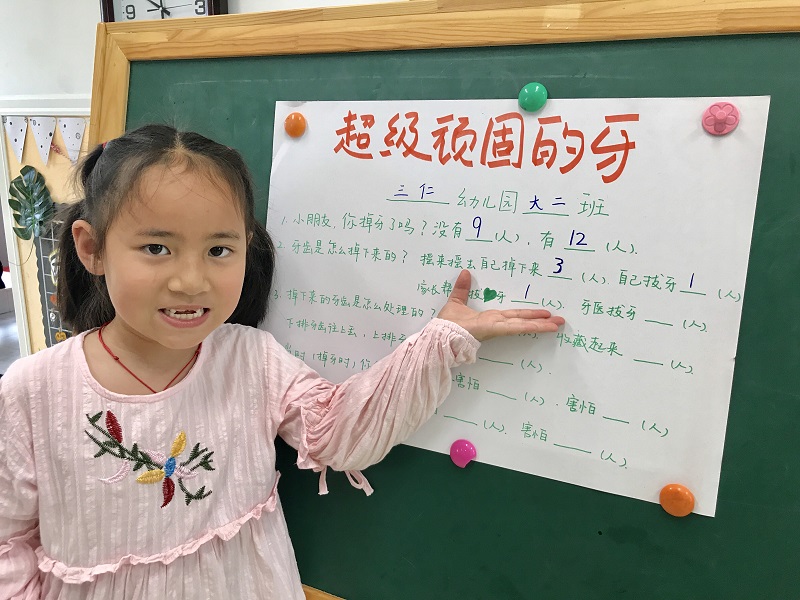 超级顽固的牙
三仁 幼儿园 大二 班
1. 小朋友,你掉牙了吗?没有 9 (人),有 12 (人).
2. 牙齿是怎么掉下来的? 摇来摇去自己掉下来 3 (人) 自己拔牙 1 (人)
家长帮 拔牙 1 (人). 牙医拔牙 (人)
3. 掉下来的牙齿是怎么处理的?
下排牙齿往上丢,上排 (人) 收藏起来 (人)
时(掉牙时)你 (人).
害怕 (人). 害怕 (人)
(人). 害怕 (人).